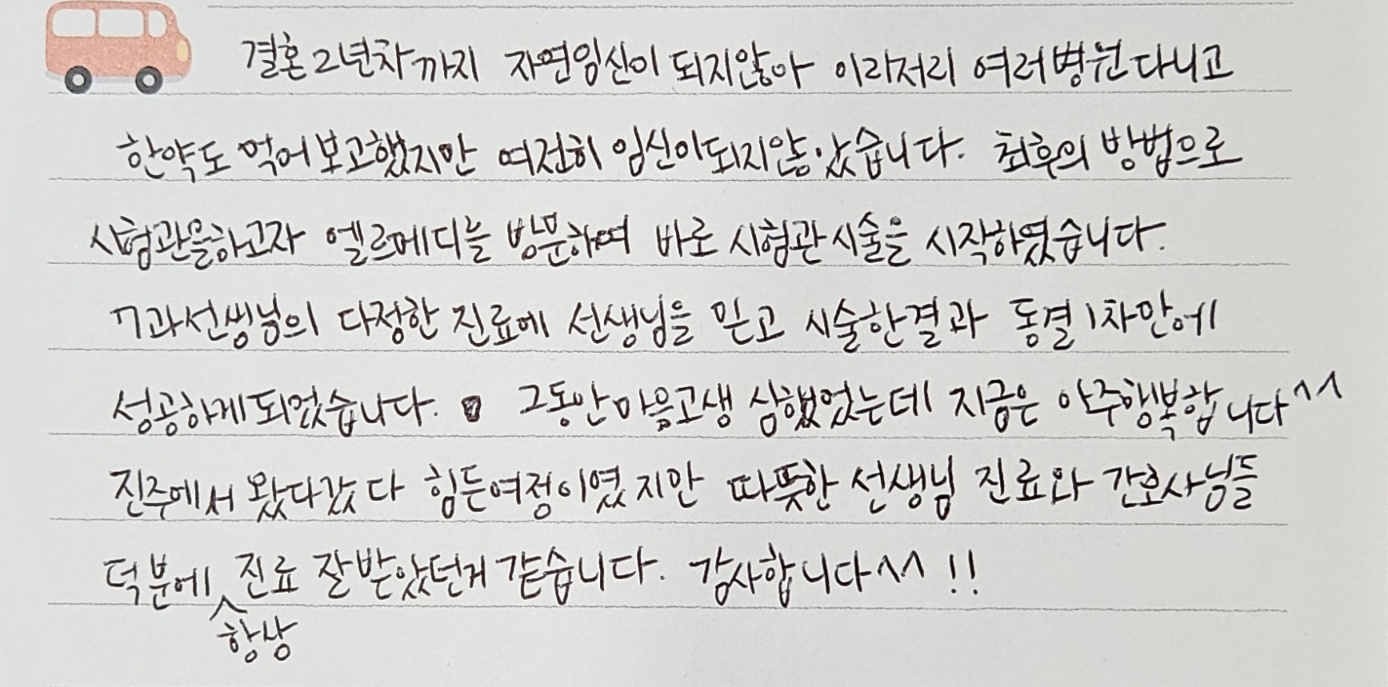 결혼2년차까지 자연임신이 되지않아 이리저리 여러병원다니고
한약도 먹어보고했지만 여전히 임신이되지않았습니다. 최후의 방법으로
시험관을하고자 엘르메디를 방문하여 바로 시험관시술을 시작하였습니다.
7과선생님의 다정한 진료에 선생님을 믿고 시술한결과 동결1차만에
성공하게되었습니다. 그동안마음고생 심했었는데 지금은 아주행복합니다^^
진주에서 왔다갔다 힘든여정이였지만 따뜻한 선생님 진료와 간호사님들
덕분에 항상 진료 잘받았던거같습니다. 감사합니다^^ !!